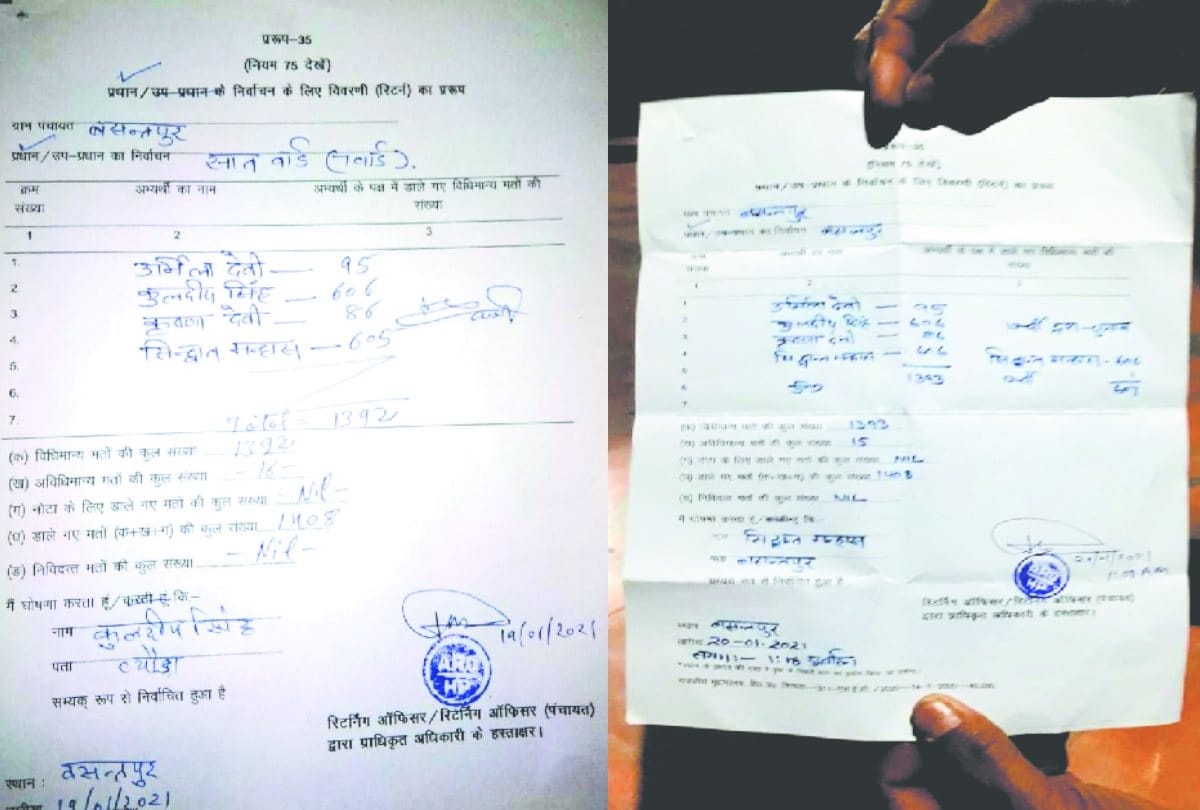 प्ररूप-35
(नियम 75 देखें)
प्रधान/उप-प्रधान के निर्वाचन के लिए विवरणी (रिटर्न) का प्ररूप
ग्राम पंचायत बसन्तपुर
प्रधान/उप-प्रधान का निर्वाचन सात वार्ड (7वार्ड).
क्रम संख्या अभ्यर्थी का नाम अभ्यर्थी के पक्ष में डाले गए विधिमान्य मतों की संख्या
1 2 3
1. उर्मिला देवी — 95
2. कुलदीप सिंह — 606
3. कृष्णा देवी — 86
4. सिद्धांत मन्हास — 605
5.
6.
7. Total = 1392
(क) विधिमान्य मतों की कुल संख्या 1392
(ख) अविधिमान्य मतों की कुल संख्या -16-
(ग) नोटा के लिए डाले गए मतों की कुल संख्या Nil-
(घ) डाले गए मतों (क+ख+ग) की कुल संख्या 1408
(ङ) निविदत्त मतों की कुल संख्या -Nil-
मैं घोषणा करता हूं/करती हूं कि-
नाम कुलदीप सिंह
पता त्यौड़ा
सम्यक् रूप से निर्वाचित हुआ है
19/01/2021
ARO
HP
रिटर्निंग ऑफिसर/रिटर्निंग ऑफिसर (पंचायत)
द्वारा प्राधिकृत अधिकारी के हस्ताक्षर।
स्थान : बसन्तपुर
19/01/2021
प्ररूप-35
(नियम 75 देखें)
प्रधान/उप-प्रधान के निर्वाचन के लिए विवरणी (रिटर्न) का प्ररूप
ग्राम पंचायत बसन्तपुर
प्रधान/उप-प्रधान का निर्वाचन बसन्तपुर
क्रम संख्या अभ्यर्थी का नाम अभ्यर्थी के पक्ष में डाले गए विधिमान्य मतों की संख्या
1 2 3
1 उर्मिला देवी — 95
2 कुलदीप सिंह — 606
3 कृष्णा देवी — 86
4 सिद्धांत मन्हास — 606 सिद्धांत मन्हास - 606
5 कुल 1393
6
7
(क) विधिमान्य मतों की कुल संख्या 1393
(ख) अविधिमान्य मतों की कुल संख्या 15
(ग) नोटा के लिए डाले गए मतों की कुल संख्या NIL
(घ) डाले गए मतों (क+ख+ग) की कुल संख्या 1408
(ङ) निविदत्त मतों की कुल संख्या NIL
मैं घोषणा करता हूं/करती हूं कि-
नाम सिद्धांत मन्हास
पता बसन्तपुर
सम्यक् रूप से निर्वाचित हुआ है
20/01/2021
ARO
HP
रिटर्निंग ऑफिसर/रिटर्निंग ऑफिसर (पंचायत)
द्वारा प्राधिकृत अधिकारी के हस्ताक्षर।
स्थान बसन्तपुर
तारीख 20-01-2021